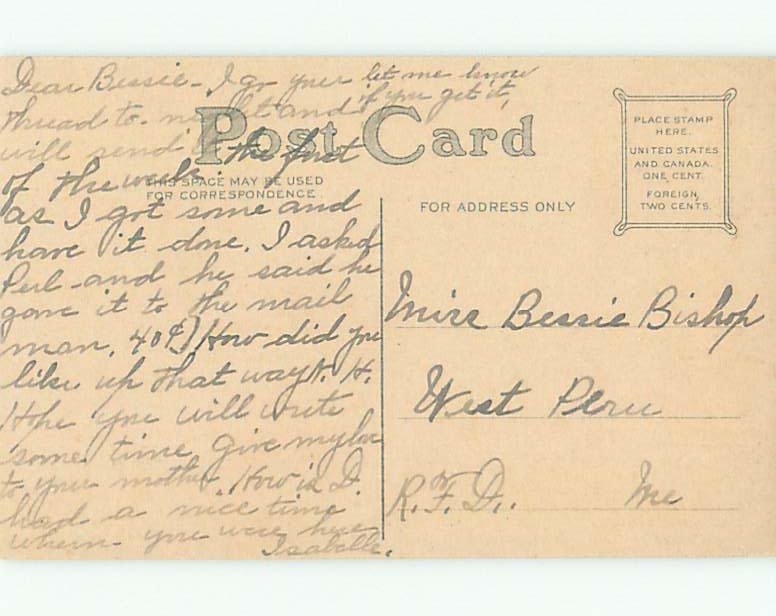 Dear Bessie - I go your let me know
thread to-night and if you get it,
will send it the first
of the week.
as I got some and
have it done. I asked
Perl and he said he
gave it to the mail
man. 40¢) How did you
like up that way N. H.
Hope you will write
some time give my love
to your mother. How is D.
had a nice time
when you were here
Isabelle.
Post Card
THIS SPACE MAY BE USED
FOR CORRESPONDENCE
FOR ADDRESS ONLY
PLACE STAMP
HERE.
UNITED STATES
AND CANADA.
ONE CENT.
FOREIGN,
TWO CENTS.
Miss Bessie Bishop
West Peru
R. F. D. Me